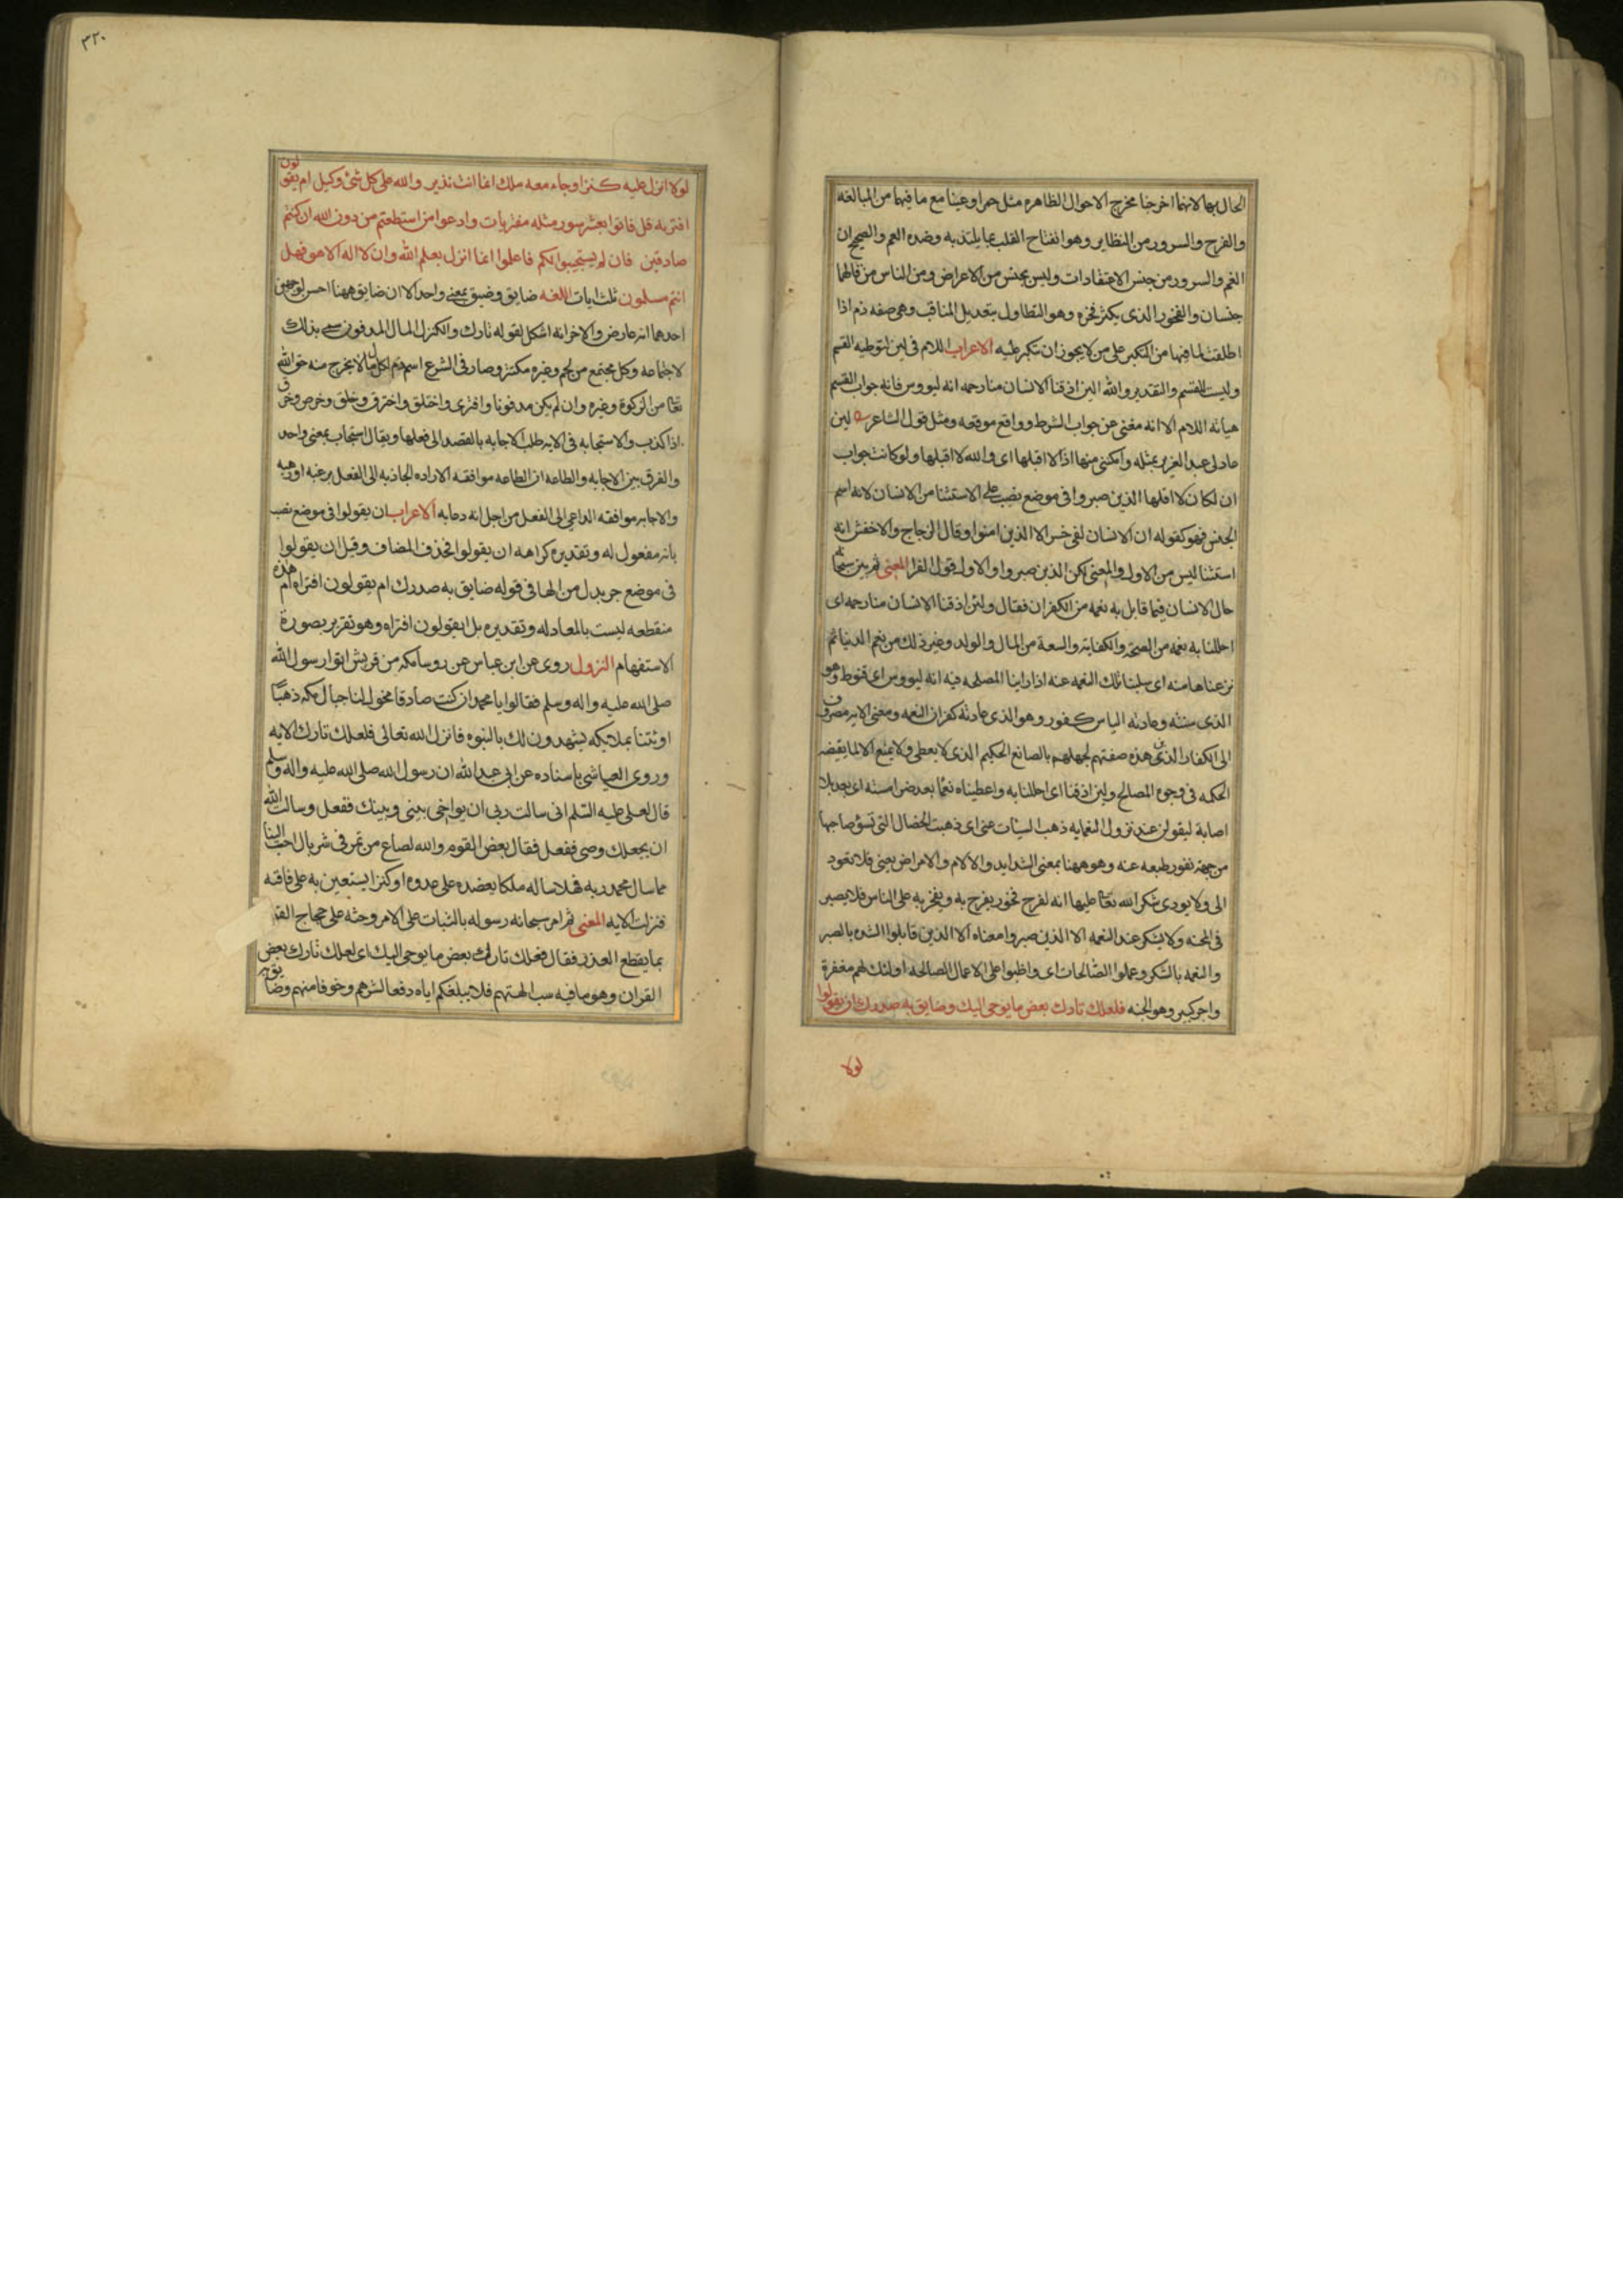 الحال بهما لانهما اخرجتا مخرج الاحوال الظاهره مثل حمرا وعينا مع ما فيهما من المبالغه
والفرح والسرور من النظاير وهو انفتاح القلب بما يلتذ به وضده الغم والصحيح ان
الغم والسرور من جنس الاعتقادات وليس بجنس من الاعراض ومن الناس من قال هما
جنسان والفخور الذى يكثر فخره وهو التطاول بتعديل المناقب وهى صفه ذم اذا
اطلقت لما فيها من التكبر على من لا يجوز ان يتكبر عليه الاعراب اللام فى لئن لتوطيه القسم
وليست للقسم والتقدير والله لئن اذقنا الانسان منا رحمه انه ليووس فانه جواب القسم
هيانه اللام الا انه مغنى عن جواب الشرط وواقع موقعه ومثل قول الشاعر لين
عاد لى عبد العزيز بمثله وامكننى منها اذا لا اقبلها اى والله لا اقبلها ولو كانت جواب
ان لكان لا اقلها الذين صبروا فى موضع نصب على الاستثنا من الانسان لانه اسم
الجنس فهو كقوله ان الانسان لفى خسر الا الذين امنوا وقال الزجاج والاخفش انه
استثنا ليس من الاول والمعنى لكن الذين صبروا والاول قول الفرا المعنى ثم بين سبحانه
حال الانسان فيما قابل به نعمه من الكفران فقال ولئن اذقنا الانسان منا رحمه اى
احللنا به نعمه من الصحة والكفاية والسعة من المال والولد وغير ذلك من نعم الدنيا ثم
نزعناها منه اى سلبنا تلك النعمه عنه اذا راينا المصلحه فيه انه ليووس اى قنوط وهو
الذى سنته وعادته الياس كفور وهو الذى عادته كفران النعمه ومعنى الايه مصروف
الى الكفار الذين هذه صفتهم لجهلهم بالصانع الحكيم الذى لا يعطى ولا يمنع الا لما يقتضيه
الحكمه فى وجوه المصالح ولئن اذقنا اى احللنا به واعطيناه نعما بعد ضرا مسته اى بعد بلا
اصابة ليقولن عند نزول النعما به ذهب السيئات عنى اى ذهبت الخصال التى تسؤ صاحبها
من جهة نفور طبعه عنه وهو ههنا بمعنى الشدايد والالام والامراض يعنى فلا تعود
الى ولا يودى شكر الله تعالى عليها انه لفرح فخور يفرح به ويفخر به على الناس فلا يصبر
فى المحنه ولا يشكر عند النعمه الا الذين صبروا معناه الا الذين قابلوا الشده بالصبر
والنعمه بالشكر وعملوا الصالحات اى واظبوا على الاعمال الصالحه اولئك لهم مغفرة
واجر كبير وهو الجنه فلعلك تارك بعض ما يوحى اليك وضايق به صدرك ان يقولوا
لولا
٣٢٠
لولا انزل عليه كنز او جاء معه ملك انما انت نذير والله على كل شئ وكيل ام يقولون
افتريه قل فاتوا بعشر سور مثله مفتريات وادعوا من استطعتم من دون الله ان كنتم
صادقين فان لم يستجيبوا لكم فاعلموا انما انزل بعلم الله وان لا اله الا هو فهل
انتم مسلمون ثلث ايات اللغه ضايق وضيق بمعنى واحد الا ان ضايق ههنا احسن لوجهين
احدهما انه عارض والاخر انه اشكل لقوله تارك والكنز المال المدفون سمى بذلك
لاجتماعه وكل مجتمع من لحم وغيره مكتنز وصار فى الشرع اسم ذم لكل مال لا يخرج منه حق الله
تعالى من الزكوة وغيره وان لم يكن مدفونا وافترى واختلق واخترق وخلق وخرص وخرق
اذا كذب والاستجابه فى الايه طلب الاجابه بالقصد الى فعلها ويقال استجاب بمعنى واحد
والفرق بين الاجابه والطاعه ان الطاعه موافقه الاراده الجاذبه الى الفعل برغبه او رهبه
والاجابه موافقه الداعى الى الفعل من اجل انه دعا به الاعراب ان يقولوا فى موضع نصب
بانه مفعول له وتقديره كراهه ان يقولوا فحذف المضاف وقيل ان يقولوا
فى موضع جر بدل من الها فى قوله ضايق به صدرك ام يقولون افتراه ام هذه
منقطعه ليست بالمعادله وتقديره بل ايقولون افتراه وهو تقرير بصورة
الاستفهام النزول روى عن ابن عباس عن روسا مكه من قريش اتوا رسول الله
صلى الله عليه واله وسلم فقالوا يا محمد ان كنت صادقا فحول لنا جبال مكه ذهبا
او ئتنا بملائكه يشهدون لك بالنبوه فانزل الله تعالى فلعلك تارك الايه
وروى العياشى باسناده عن ابى عبد الله ان رسول الله صلى الله عليه واله وسلم
قال لعلى عليه السلم انى سالت ربى ان يواخى بينى وبينك ففعل وسالت الله
ان يجعلك وصى ففعل فقال بعض القوم والله لصاع من تمر فى شن بال احب الينا
مما سال محمد ربه فهلا ساله ملكا يعضده على عدوه او كنزا يستعين به على فاقه
فنزلت الايه المعنى ثم امر سبحانه رسوله بالثبات على الامر وحثه على حجاج القوم
بما يقطع العذر فقال فلعلك تارك بعض ما يوحى اليك اى لعلك تارك بعض
القران وهو ما فيه سب الهتهم فلا يبلغكم اياه دفعا لشرهم وخوفا منهم وضايق